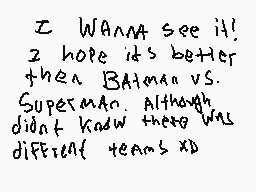 I WANNA see it!
I hope it's better
then BAtmAn vs.
SupermAn. Although
didnt know there WAs
different teams XD